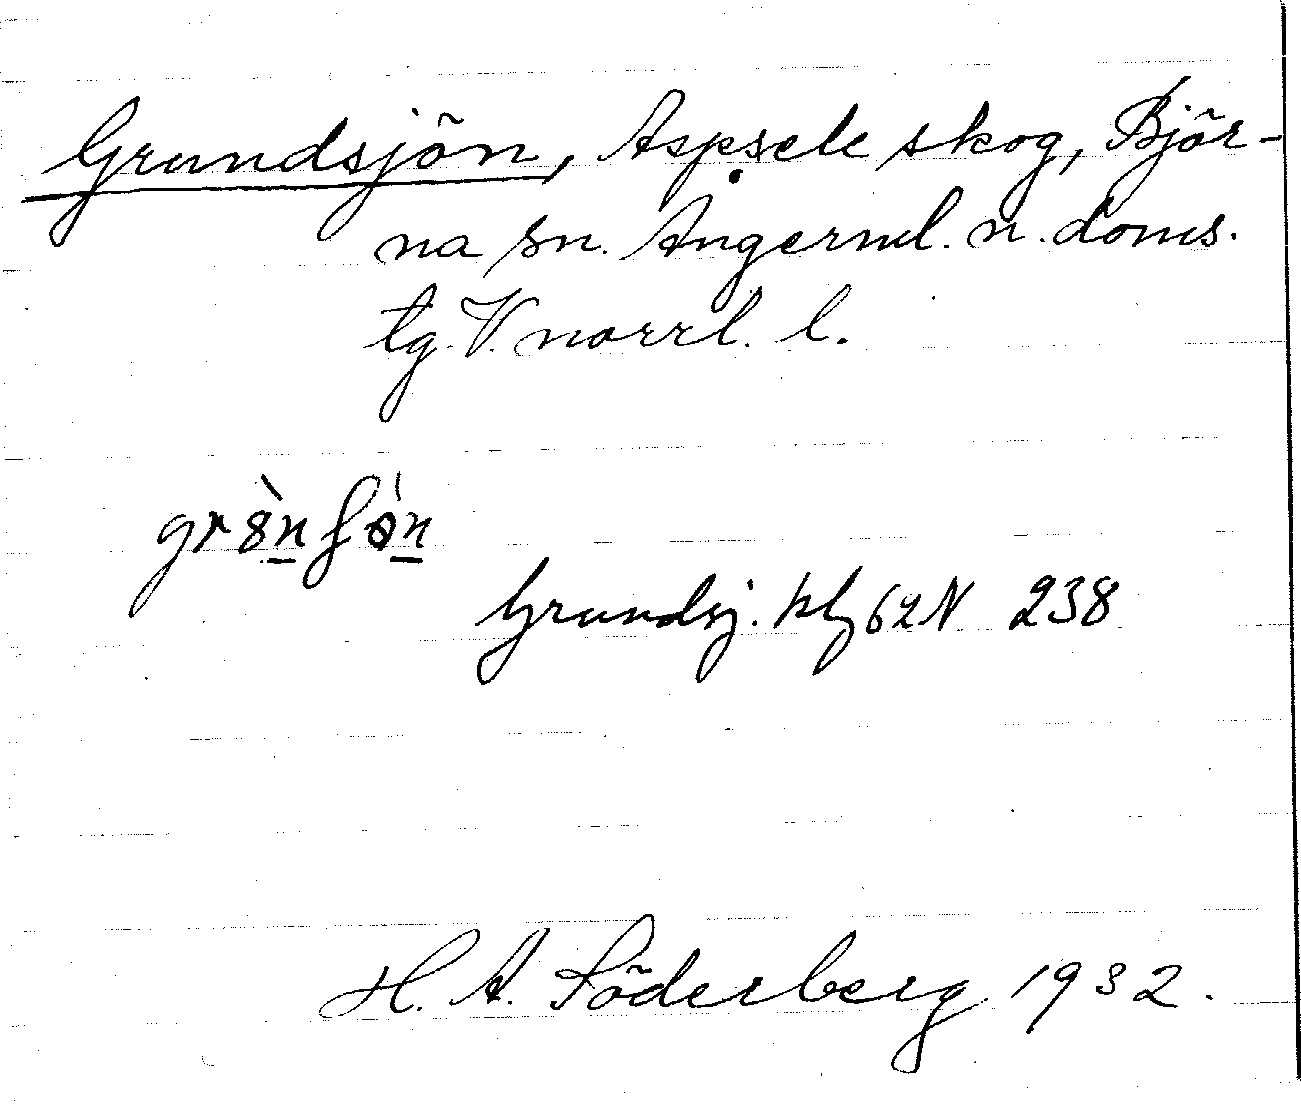 Grundsjön, Aspsele skog, Björ-
na sn. Ångerml. n. doms.
tg. V.norrl. l.
Grundsj. 62 N 238
H. A. Söderberg 1932.